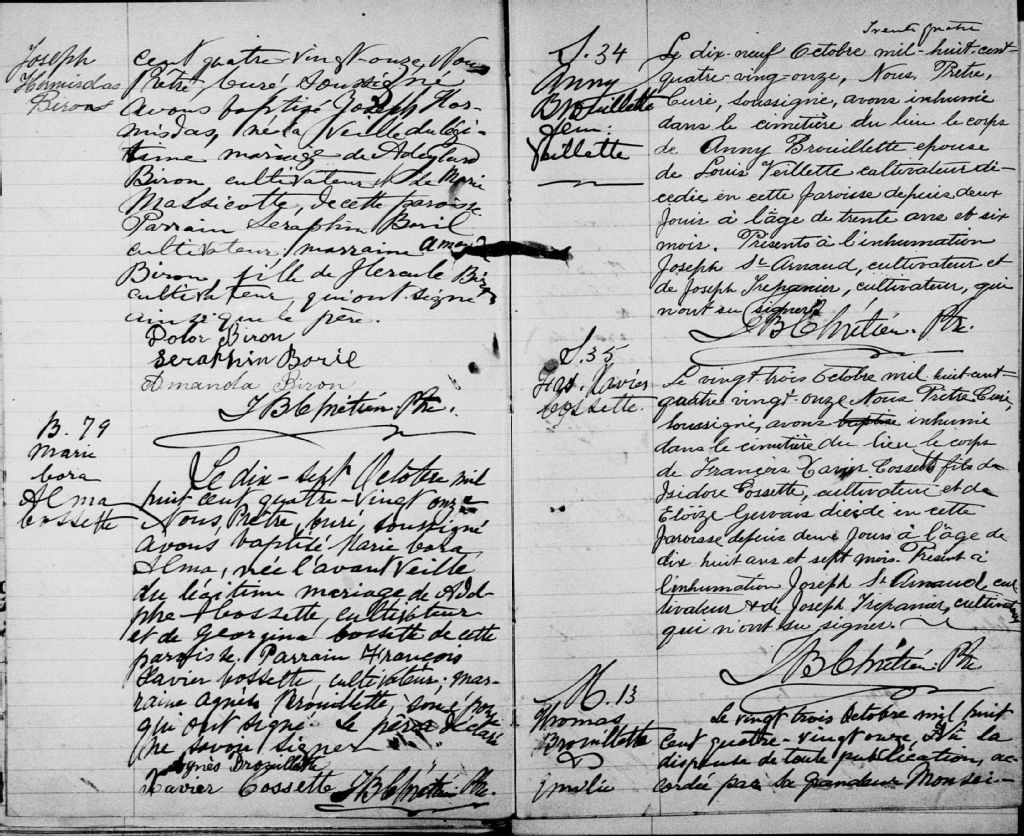 Joseph
Hormisdas
Biron
cent quatre-vingt-onze, Nous
Prêtre Curé, soussigné
avons baptisé Joseph Hor-
misdas, né la veille du légi-
time mariage de Adeglard
Biron, cultivateur et de Marie
Massicotte, de cette paroisse
Parrain Séraphin Boril
cultivateur, marraine
Biron, fille de Hercule Biron
cultivateur, qui ont signé
ainsi que le père.
Dolor Biron
Séraphin Borie
Amanda Biron
J B Chrétien Ptre.
B. 79
Marie
Cora
Alma
Cossette
Le dix-sept Octobre mil
huit cent quatre-vingt onze
Nous, Prêtre, curé, soussigné
avons baptisé Marie Cora
Alma, née l'avant veille
du légitime mariage de Adol-
phe Cossette, cultivateur
et de Georgina Cossette de cette
paroisse. Parrain François
Xavier Cossette, cultivateur; mar-
raine Agnès Brouillette,
qui ont signé. Le père déclaré
ne savoir signer
Agnès Brouillette
Xavier Cossette J B Chrétien Ptre.
Trente quatre
S. 34
Anny
Brouillette
fem:
Veillette
Le dix-neuf Octobre mil-huit-cent-
quatre-ving-onze, Nous, Prêtre,
Curé, soussigné, avons inhumé
dans le cimetière du lieu le corps
de Anny Brouillette épouse
de Louis Veillette cultivateur dé-
cédée en cette paroisse depuis deux
jours à l'âge de trente ans et six
mois. Présents à l'inhumation
Joseph St Arnaud, cultivateur et
de Joseph Trepanier, cultivateur, qui
n'ont su signer.
J B Chrétien. Ptre.
S. 35
Frs. Xavier
Cossette.
Le vingt-trois Octobre mil huit cent
quatre vingt onze Nous Prêtre Curé,
soussigné, avons baptisé inhumé
dans le cimetière du lieu le corps
de François Xavier Cossette fils de
Isidore Cossette, cultivateur et de
Eloïze Gervais décédé en cette
paroisse depuis deux jours à l'âge de
dix huit ans et sept mois. Présent à
l'inhumation Joseph St Arnaud, cul
tivateur & de Joseph Trepanier, cultivateur
qui n'ont su signer.
J B Chrétien. Ptre
M. 13
Thomas
Brouillette
&
Emilie
Le vingt trois Octobre mil huit
cent quatre-vingt onze, Vu la
dispense de toute publication, ac-
cordée par sa grandeur Monsei-